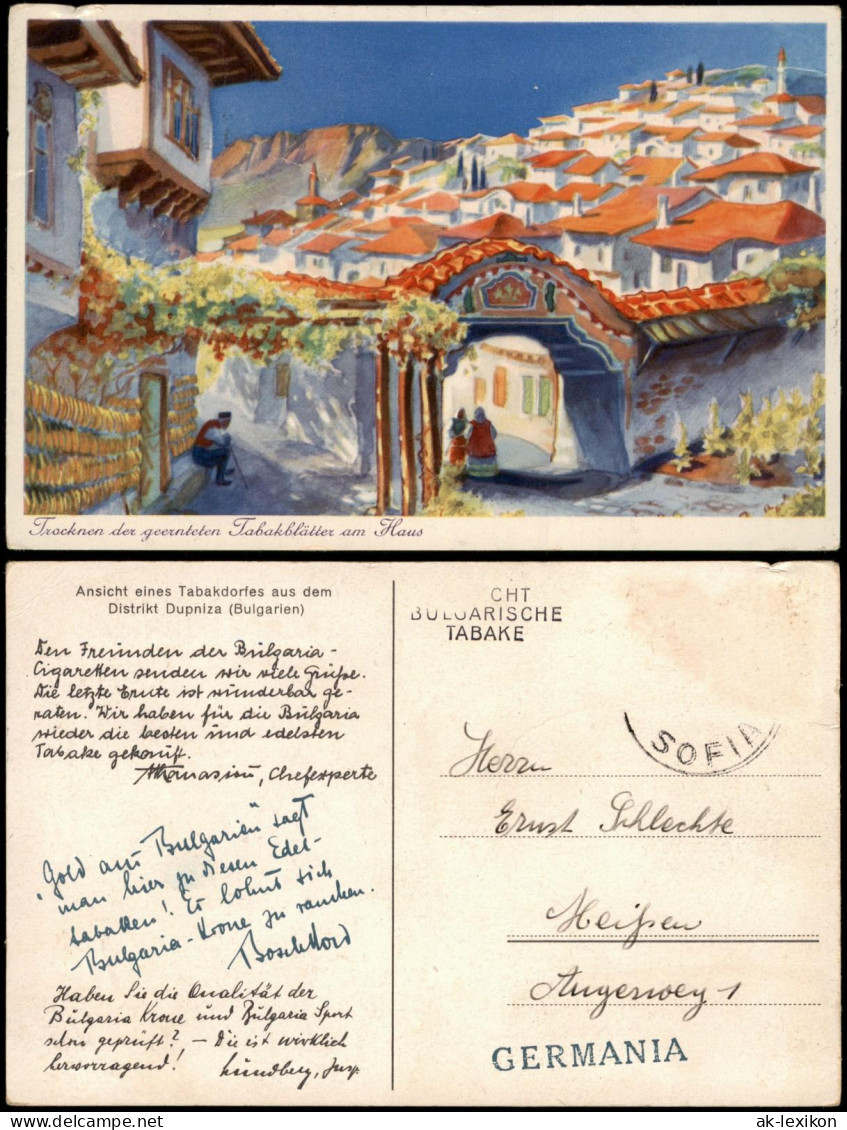 Trocknen der geernteten Tabakblätter am Haus
Ansicht eines Tabakdorfes aus dem
Distrikt Dupniza (Bulgarien)
Den Freunden der Bulgaria-
Cigaretten senden wir viele Grüße.
Die letzte Ernte ist wunderbar ge-
raten. Wir haben für die Bulgaria
wieder die besten und edelsten
Tabake gekauft.
Athanasiou, Chefexperte
"Gold aus Bulgarien" sagt
man hier zu diesen Edel-
tabaken! Es lohnt sich
Bulgaria-Krone zu rauchen.
Haben Sie die Qualität der
Bulgaria Krone und Bulgaria Sport
schon geprüft? - Die ist wirklich
hervorragend! Lundberg, Insp.
CHT
BULGARISCHE
TABAKE
SOFIA
Herrn
Ernst Schlechte
Meißen
Angerweg 1
GERMANIA
oldthing
ak-lexikon